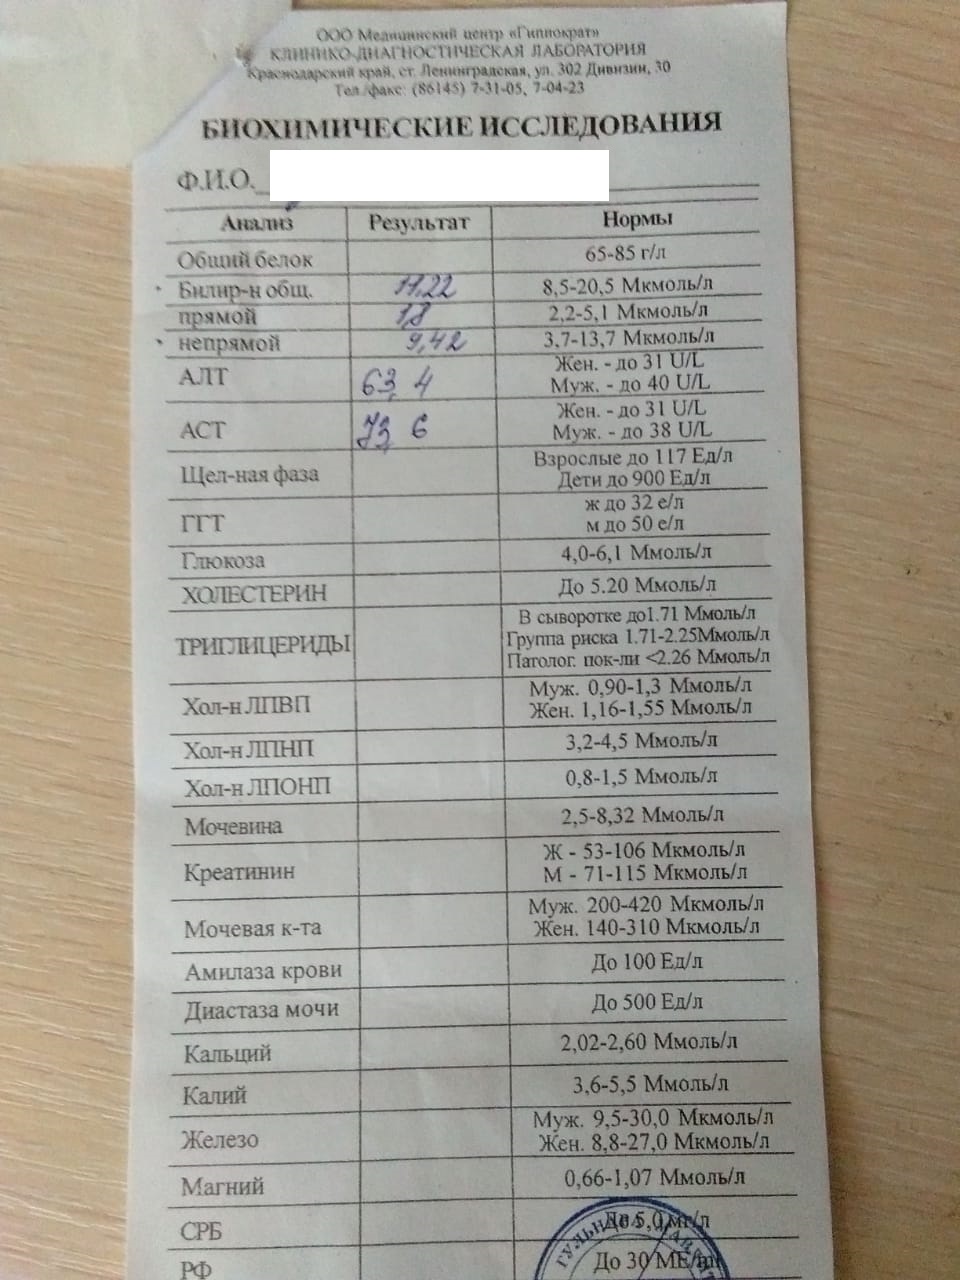 ООО Медицинский центр «Гиппократ»
КЛИНИКО-ДИАГНОСТИЧЕСКАЯ ЛАБОРАТОРИЯ
Краснодарский край, ст. Ленинградская, ул. 302 Дивизии, 30
Тел./факс: (86145) 7-31-05, 7-04-23
БИОХИМИЧЕСКИЕ ИССЛЕДОВАНИЯ
Ф.И.О.
Анализ Результат Нормы
Общий белок 65-85 г/л
Билир-н общ. 11,22 8,5-20,5 Мкмоль/л
прямой 1,8 2,2-5,1 Мкмоль/л
непрямой 9,42 3,7-13,7 Мкмоль/л
АЛТ 63,4 Жен. - до 31 U/L
Муж. - до 40 U/L
АСТ 73,6 Жен. - до 31 U/L
Муж. - до 38 U/L
Щел-ная фаза Взрослые до 117 Ед/л
Дети до 900 Ед/л
ГГТ ж до 32 е/л
м до 50 е/л
Глюкоза 4,0-6,1 Ммоль/л
ХОЛЕСТЕРИН До 5.20 Ммоль/л
ТРИГЛИЦЕРИДЫ В сыворотке до1.71 Ммоль/л
Группа риска 1.71-2.25Ммоль/л
Патолог. пок-ли <2.26 Ммоль/л
Хол-н ЛПВП Муж. 0,90-1,3 Ммоль/л
Жен. 1,16-1,55 Ммоль/л
Хол-н ЛПНП 3,2-4,5 Ммоль/л
Хол-н ЛПОНП 0,8-1,5 Ммоль/л
Мочевина 2,5-8,32 Ммоль/л
Креатинин Ж - 53-106 Мкмоль/л
М - 71-115 Мкмоль/л
Мочевая к-та Муж. 200-420 Мкмоль/л
Жен. 140-310 Мкмоль/л
Амилаза крови До 100 Ед/л
Диастаза мочи До 500 Ед/л
Кальций 2,02-2,60 Ммоль/л
Калий 3,6-5,5 Ммоль/л
Железо Муж. 9,5-30,0 Мкмоль/л
Жен. 8,8-27,0 Мкмоль/л
Магний 0,66-1,07 Ммоль/л
СРБ До 5,0 мг/л
РФ До 30 МЕ/ml